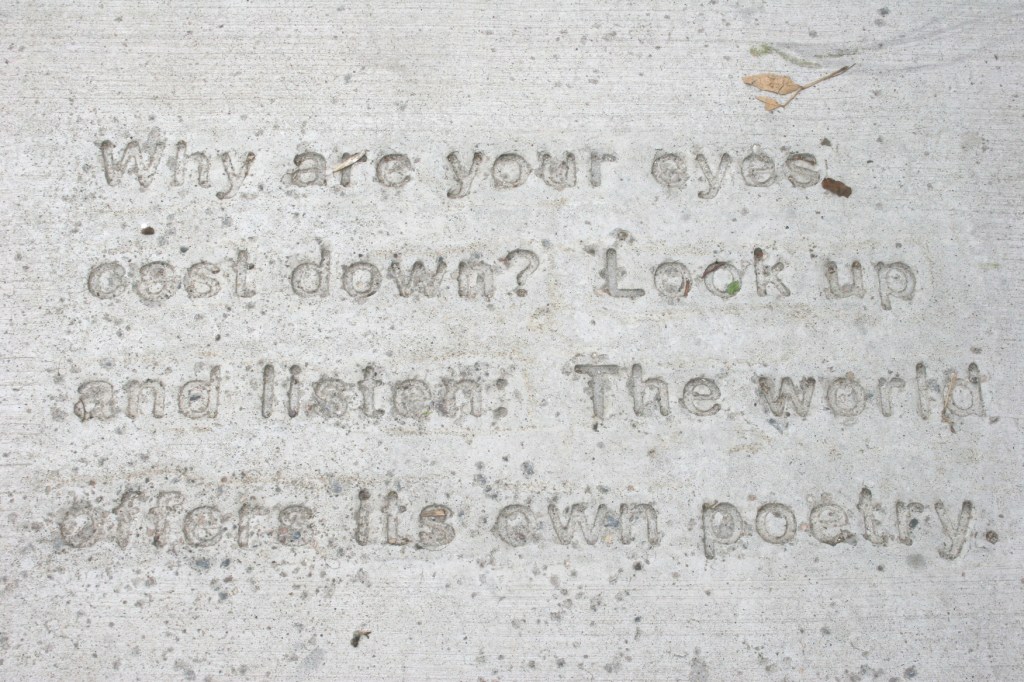 Why are your eyes
cast down? Look up
and listen: The world
offers its own poetry.